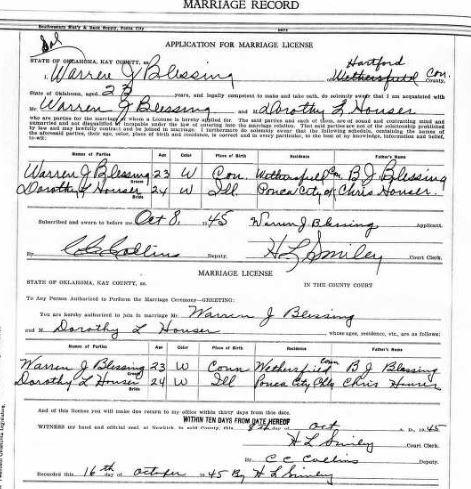 MARRIAGE RECORD
APPLICATION FOR MARRIAGE LICENSE
STATE OF OKLAHOMA, KAY COUNTY, ss. Hartford
I, Warren J Blessing Wethersfield Con. County,
State of Oklahoma, aged 23 years, and legally competent to make and take oath, do solemnly swear that I am acquainted with
Mr. Warren J Blessing and M Dorothy L Houser
who are parties for whom a License is hereby applied for. The said parties and each of them, are of sound and contracting mind and
unmarried and not disqualified or incapable under the law of entering into the marriage relation. That said parties are not of the relationship prohibited
by law and may lawfully contract and be joined in marriage. I furthermore do solemnly swear that the following schedule, containing the names of
the aforesaid parties, their age, color, place of birth and residence, is correct and in every particular, to the best of my knowledge, information and belief,
to-wit:
Names of Parties Age Color Place of Birth Residence Father's Name
Warren J Blessing 23 W Con. Wethersfield Con B J Blessing
Dorothy L Houser 24 W Ill. Ponca City Chris Houser.
Bride
Subscribed and sworn to before me Oct 8, 1945 Warren J Blessing Applicant.
By C C Collins Deputy. H L Smiley Court Clerk.
MARRIAGE LICENSE
STATE OF OKLAHOMA, KAY COUNTY, ss. IN THE COUNTY COURT
To Any Person Authorized to Perform the Marriage Ceremony—GREETING:
You are hereby authorized to join in marriage Mr. Warren J Blessing
and M Dorothy L Houser, whose ages, residence, etc., are as follows:
Names of Parties Age Color Place of Birth Residence Father's Name
Warren J Blessing 23 W Conn Wethersfield Conn B J Blessing
Groom
Dorothy L Houser 24 W Ill Ponca City Okla Chris Houser
Bride
And of this license you will make due return to my office within thirty days from this date.
WITHIN TEN DAYS FROM DATE HEREOF
WITNESS my hand and official seal at Newkirk in said County, this 8th day of Oct A. D., 1945
H L Smiley Court Clerk.
By C C Collins Deputy.
Recorded this 16th day of October 1945 By H L Smiley